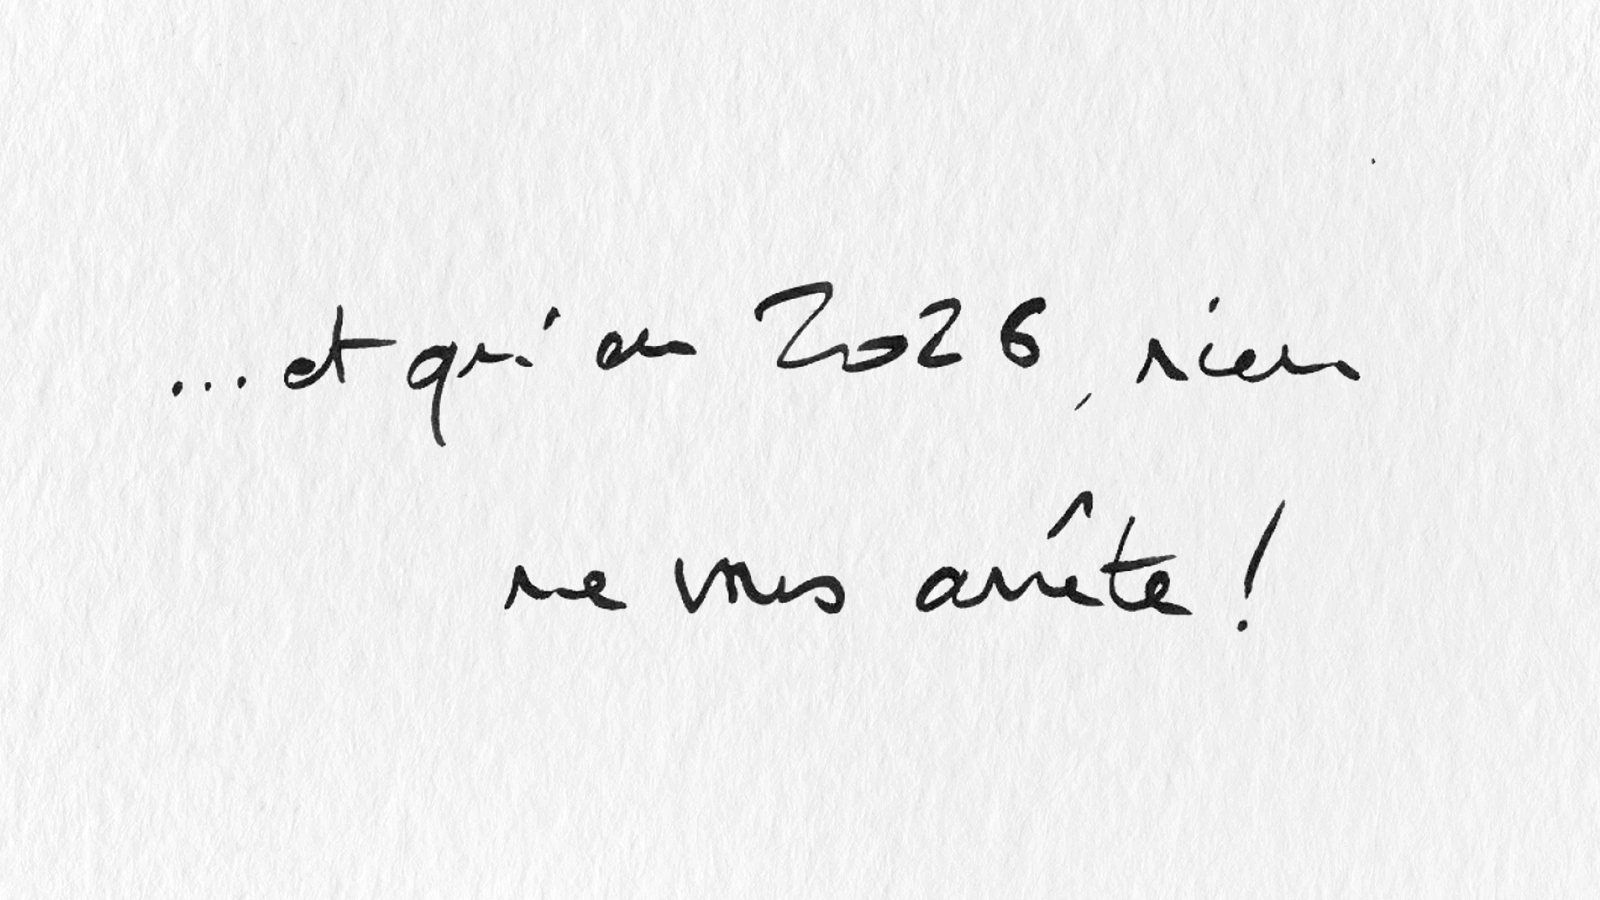 ...et qu'en 2026, rien
ne vous arrête !